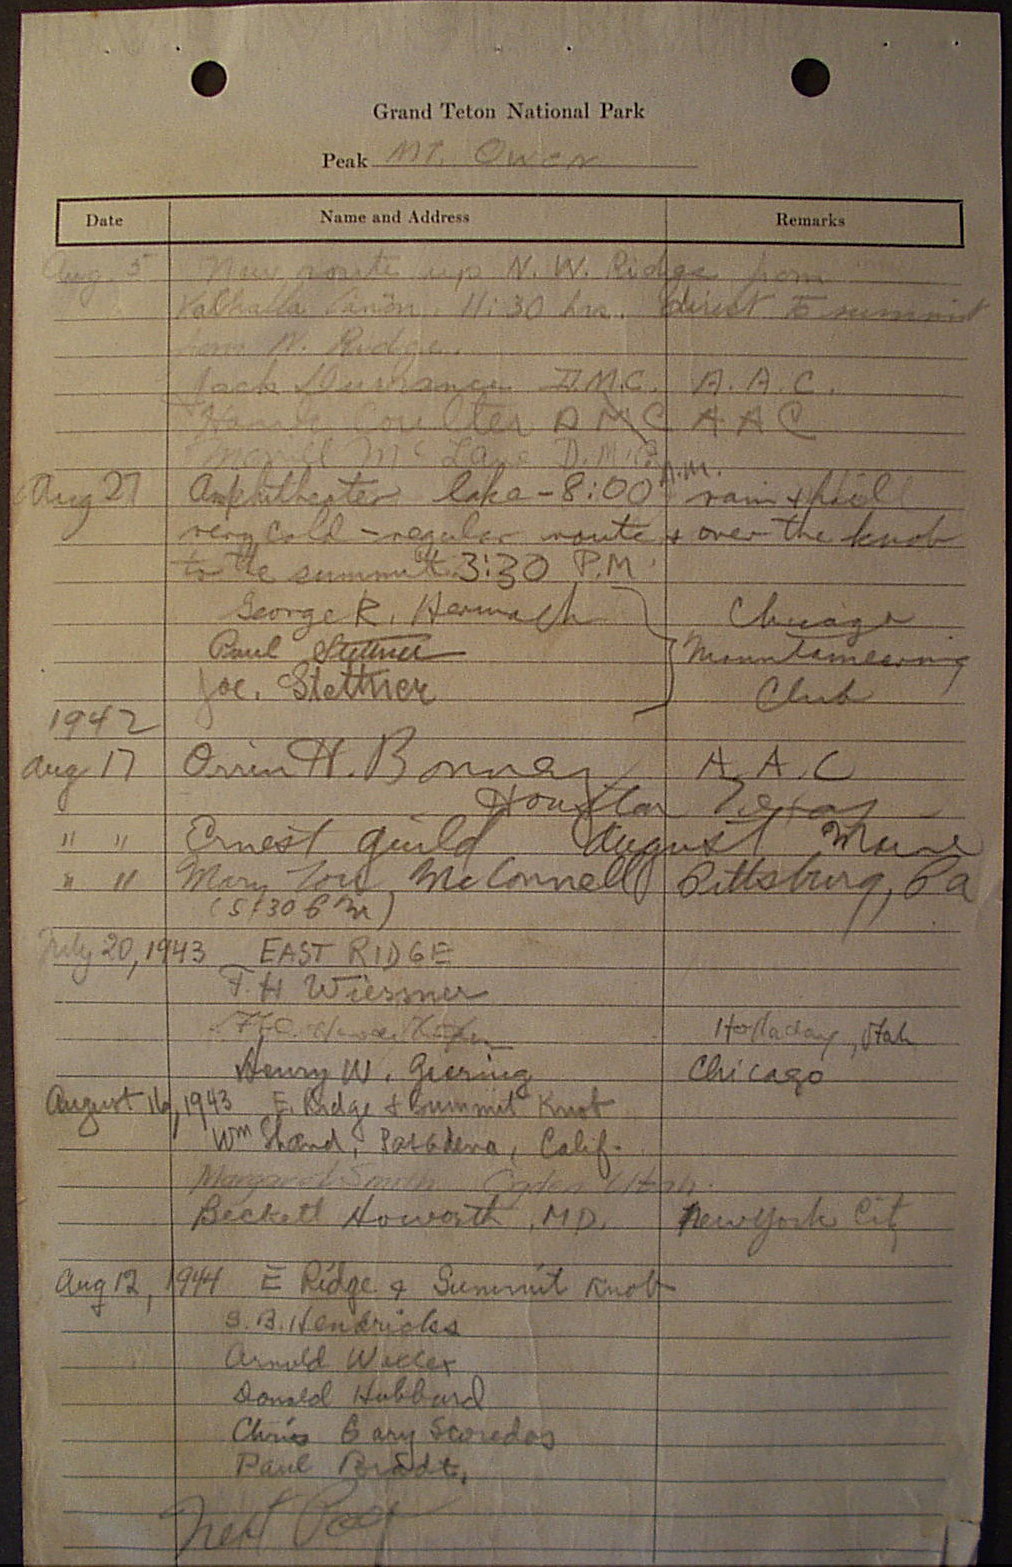 Grand Teton National Park
Peak Mt. Owen
Date Name and Address Remarks
Aug. 5 New route up N. W. Ridge from
Valhalla Canon. 11:30 hrs. direct to summit
from N. Ridge.
Jack Durrance D.M.C. A.A.C.
Coulter D M C A A C
Merrill McLane D.M.C.
Aug 27 Amphitheater lake - 8:00 A.M. rain + hail
very cold - regular route + over the knob
to the summit 3:30 P.M.
George R. Chicago
Paul Stettner Mountaineering
Joe. Stettner Club
1942
Aug 17 Orrin H. Bonney A.A.C
Houston Texas
" " Ernest Guild August Maine
" " Mary Lou McConnell Pittsburg, Pa
(5:30 PM)
July 20, 1943 EAST RIDGE
F. H Wiessner
Holladay, Utah
Henry W. Giering Chicago
August 16, 1943 E. Ridge & Summit Knob
Wm Shand, Pasadena, Calif.
Margaret Smith Ogden Utah.
Beckett Howorth, M.D. New York City
Aug 12, 1944 E Ridge & Summit Knob
S. B. Hendricks
Arnold Wexler
Donald Hubbard
Chris Gary Scoredos
Paul Bradt.